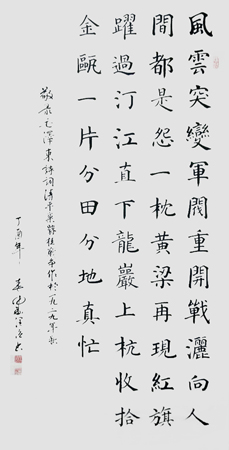 風雲突變軍閥重開戰灑向人
間都是怨一枕黃粱再現紅旗
躍過汀江直下龍巖上杭收拾
金甌一片分田分地真忙
敬錄毛澤東詩詞清平樂蔣桂戰爭作於一九二九年秋
丁酉年